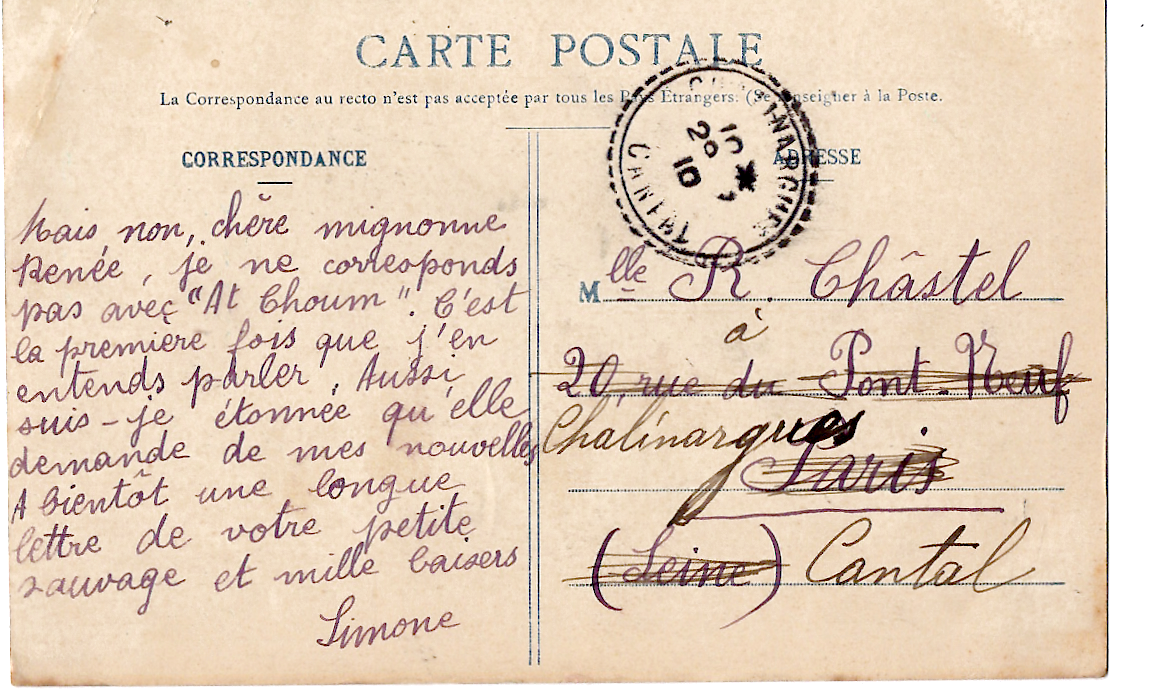 CARTE POSTALE
La Correspondance au recto n'est pas acceptée par tous les Pays Étrangers. (Se renseigner à la Poste.
CORRESPONDANCE
Mais, non, chère mignonne
Renée, je ne corresponds
pas avec "At Choum". C'est
la première fois que j'en
entends parler. Aussi,
suis-je étonnée qu'elle
demande de mes nouvelles
A bientôt une longue
lettre de votre petite
sauvage et mille baisers
Simone
CHALINARGUES
10
29
10
CANTAL
ADRESSE
Mlle R. Châstel
à
20, rue du Pont-Neuf
Chalinargues
Paris
(Seine) Cantal